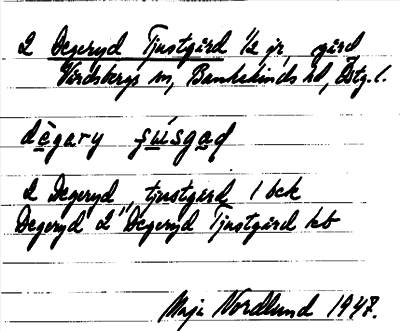 2 Degeryd Tjustgård 1/2 jr, gård
Vårdsbergs sn, Bankekinds hd, Östg. l.
dègary
2 Degeryd, tjustgård 1 bck
Degeryd 2" Degeryd Tjustgård kb
Maja Nordlund 1947.